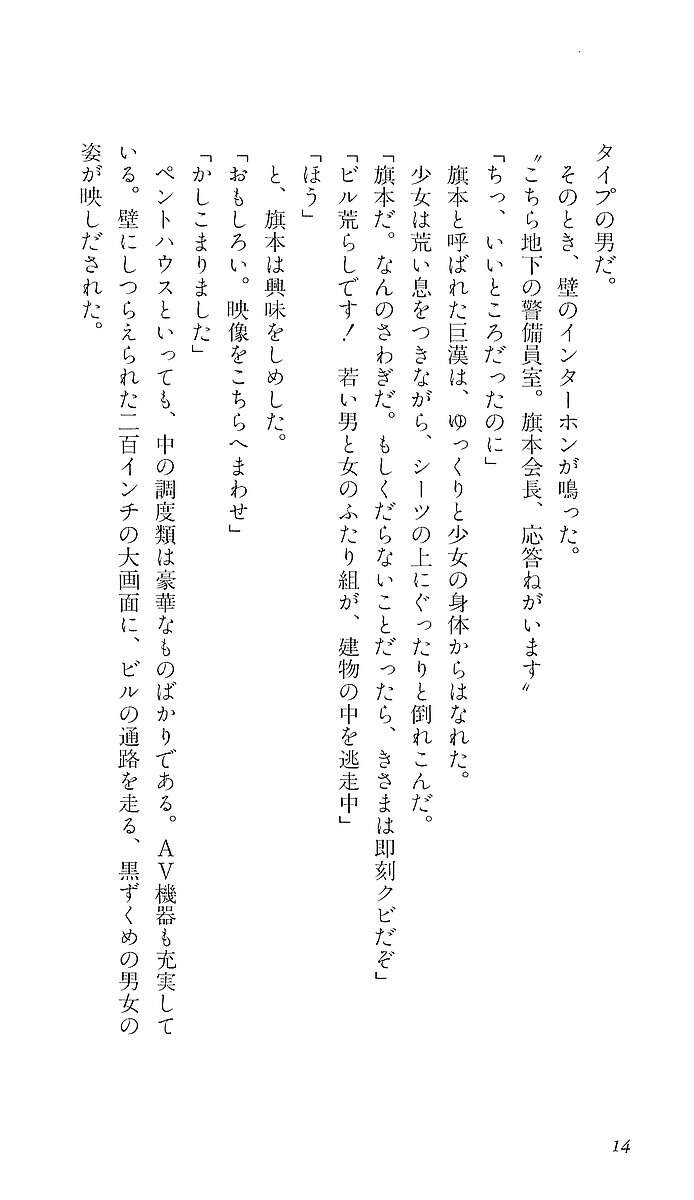 タイプの男だ。
　そのとき、壁のインターホンが鳴った。
〝こちら地下の警備員室。旗本会長、応答ねがいます〟
「ちっ、いいところだったのに」
　旗本と呼ばれた巨漢は、ゆっくりと少女の身体からはなれた。
　少女は荒い息をつきながら、シーツの上にぐったりと倒れこんだ。
「旗本だ。なんのさわぎだ。もしくだらないことだったら、きさまは即刻クビだぞ」
「ビル荒らしです！　若い男と女のふたり組が、建物の中を逃走中」
「ほう」
　と、旗本は興味をしめした。
「おもしろい。映像をこちらへまわせ」
「かしこまりました」
　ペントハウスといっても、中の調度類は豪華なものばかりである。ＡＶ機器も充実して
いる。壁にしつらえられた二百インチの大画面に、ビルの通路を走る、黒ずくめの男女の
姿が映しだされた。
14